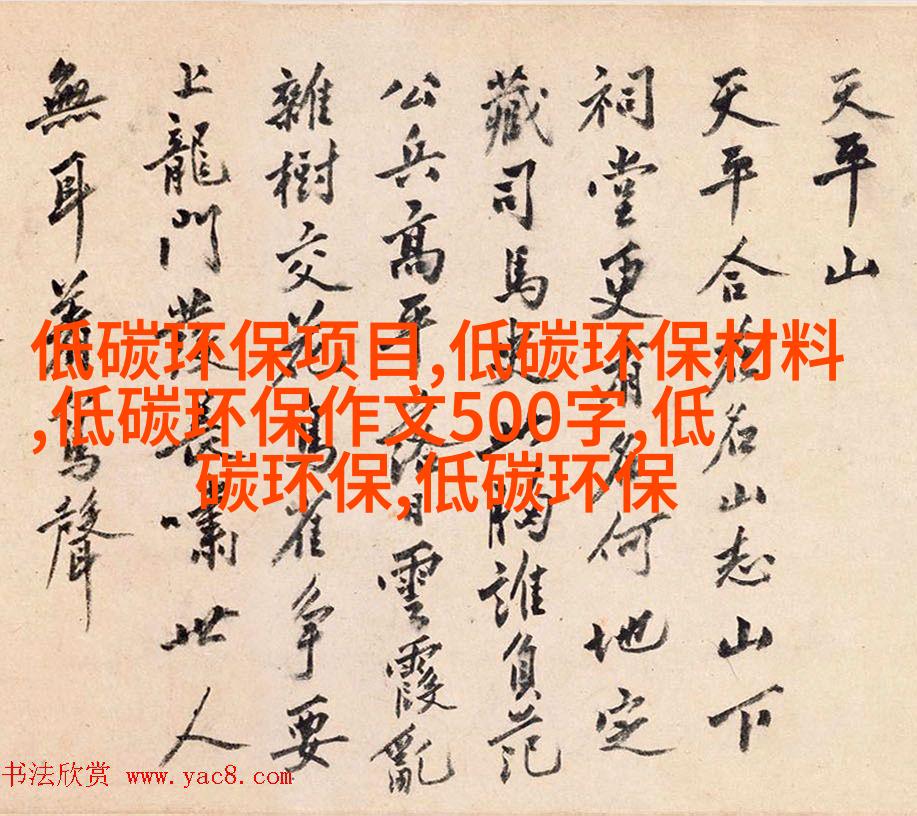 天平山
天平合名山志山下
祠堂更有名何地定
藏司馬史此胸誰負范
公兵高平落日雲霞亂
雜樹交花鳥雀爭要
上龍門發長嘯世人
無耳聲
低碳环保项目,低碳环保材料
,低碳环保作文500字,低
碳环保,低碳环保
书法欣赏 www.yac8.com